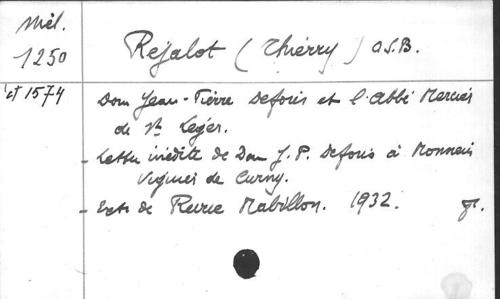 Mél.
1250
et 1574
Rejalot (Thierry) O.S.B.
Dom Jean-Pierre Deforis et l'abbé Mercier
de St Léger.
- Lettre inédite de Dom J. P. Deforis à
de
- Extr. de Revue Mabillon. 1932.